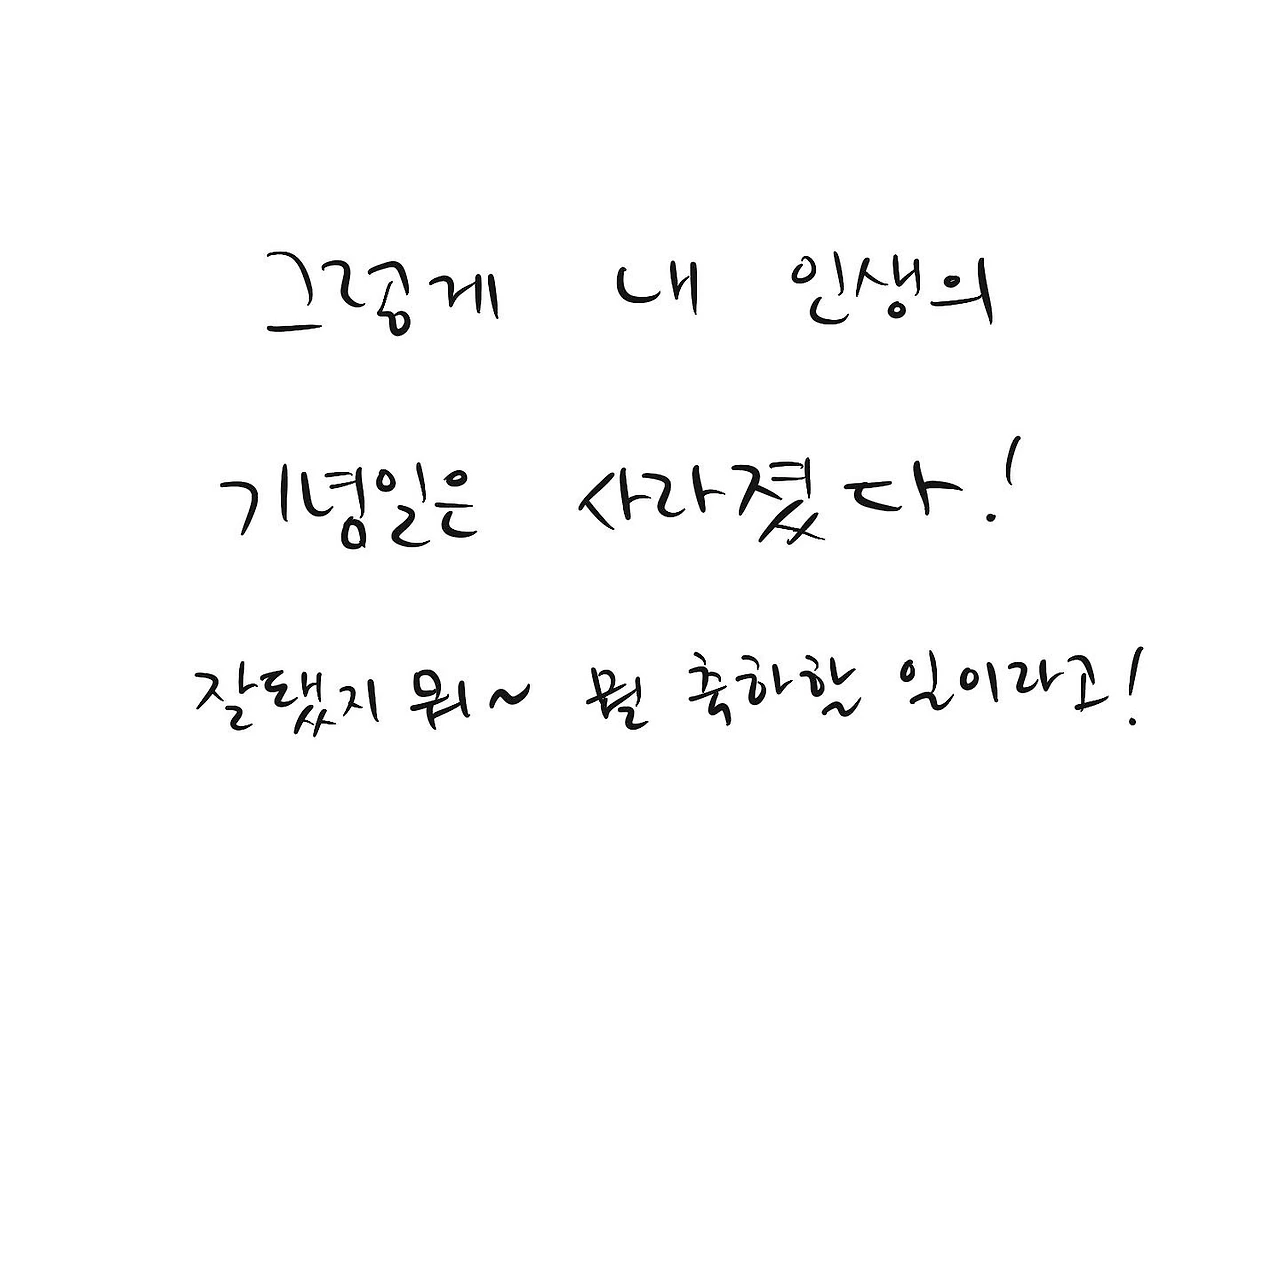 그렇게 내 인생의
기념일은 사라졌다!
잘됐지 뭐~ 뭘 축하할 일이라고!